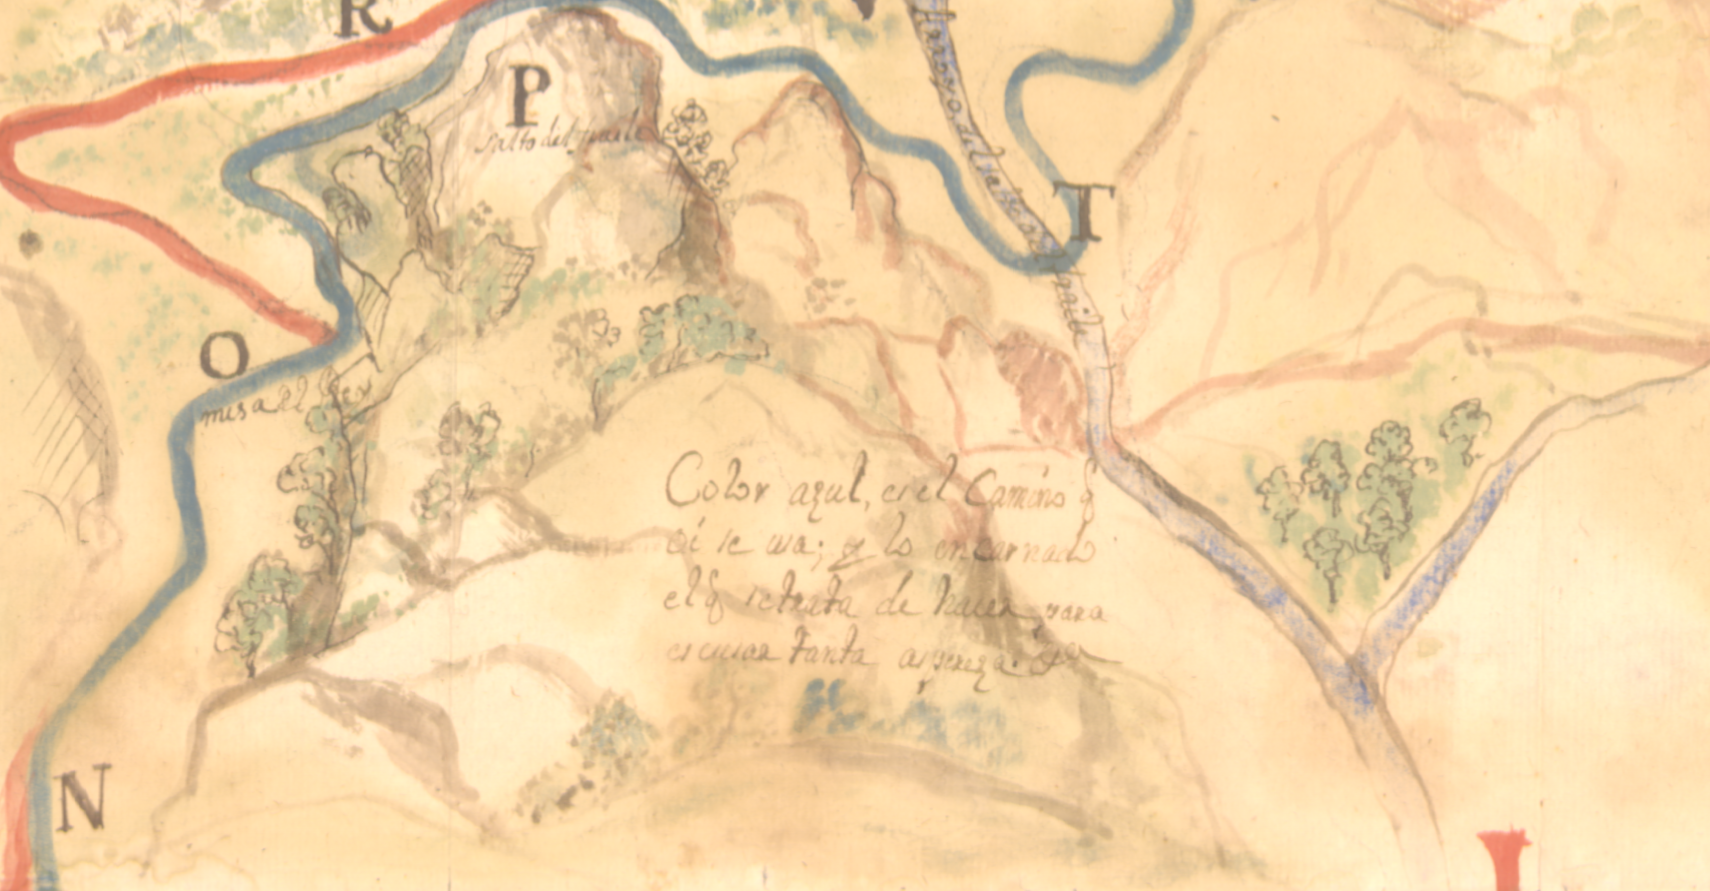 R
P
Salto del fraile
T
O
misa el
Color azul, es el Camino q̃
oi se usa; y lo encarnado
el q̃ se trata de hacer para
escusar tanta aspereza.
N
I